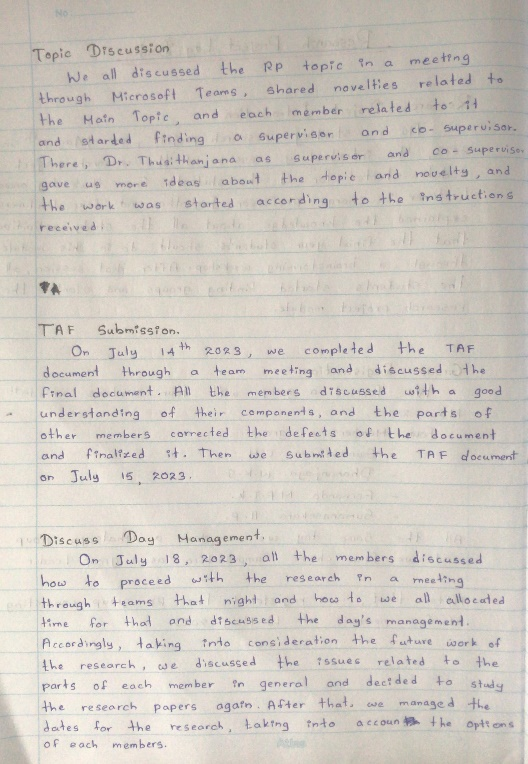 No
Topic Discussion
We all discussed the RP topic in a meeting
through Microsoft Teams, shared novelties related to
the Main Topic, and each member related to it
and starded finding a supervisor and co-supervisor.
There, Dr. Thusithanjana as supervisor and co-superviso
gave us more ideas about the topic and novelty, and
the work was started according to the instructions
received.
TAF Submission.
On July 14th 2023, we completed the TAF
document through a team meeting and discussed the
final document. All the members discussed with a good
understanding of their components, and the parts of
other members corrected the defects of the document
and finalized it. Then we submited the TAF document
on July 15, 2023.
Discuss Day Management.
On July 18, 2023, all the members discussed
how to proceed with the research in a meeting
through teams that night and how to we all allocated
time for that and discussed the day's management.
Accordingly, taking into consideration the future work of
the research, we discussed the issues related to the
parts of each member in general and decided to study
the research papers again. After that, we managed the
dates for the research, taking into accoun the options
of each members.
Atlas